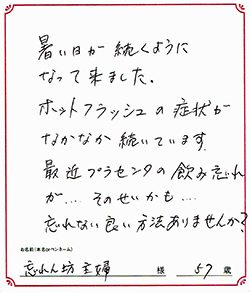 暑い日が続くように
なって来ました。
ホットフラッシュの症状が
なかなか続いています。
最近プラセンタの飲み忘れ
が....そのせいかも....
忘れない良い方法ありませんか?
お名前(本名orペンネーム)
忘れん坊主婦 様 57 歳